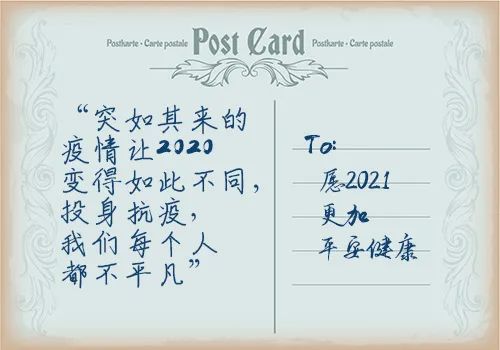 Postkarte • Carte postale Post Card Postkarte • Carte postale
“突如其来的
疫情让2020
变得如此不同，
投身抗疫，
我们每个人
都不平凡”
To:
愿2021
更加
平安健康